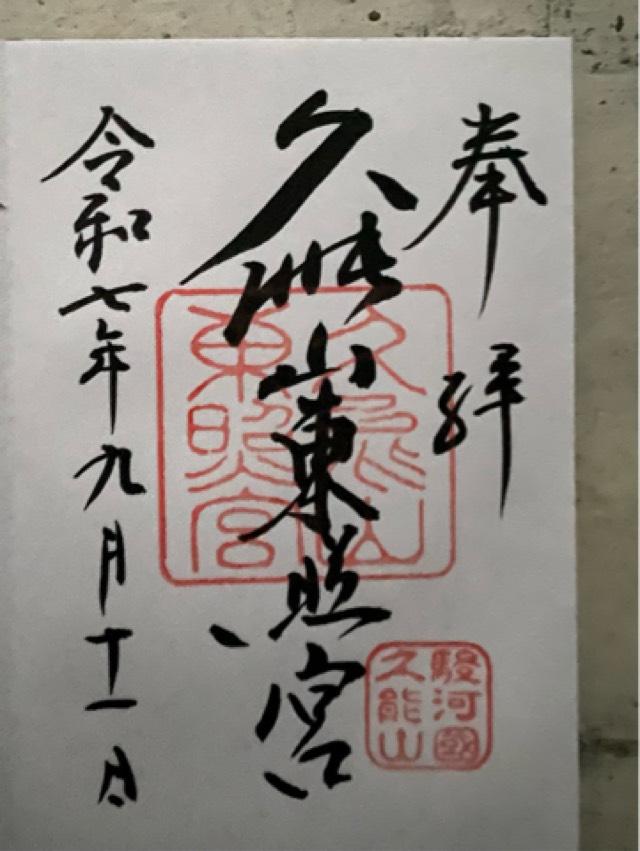 奉拝
久能山東照宮
久能山
東照宮
駿河國
久能山
令和七年九月十一日